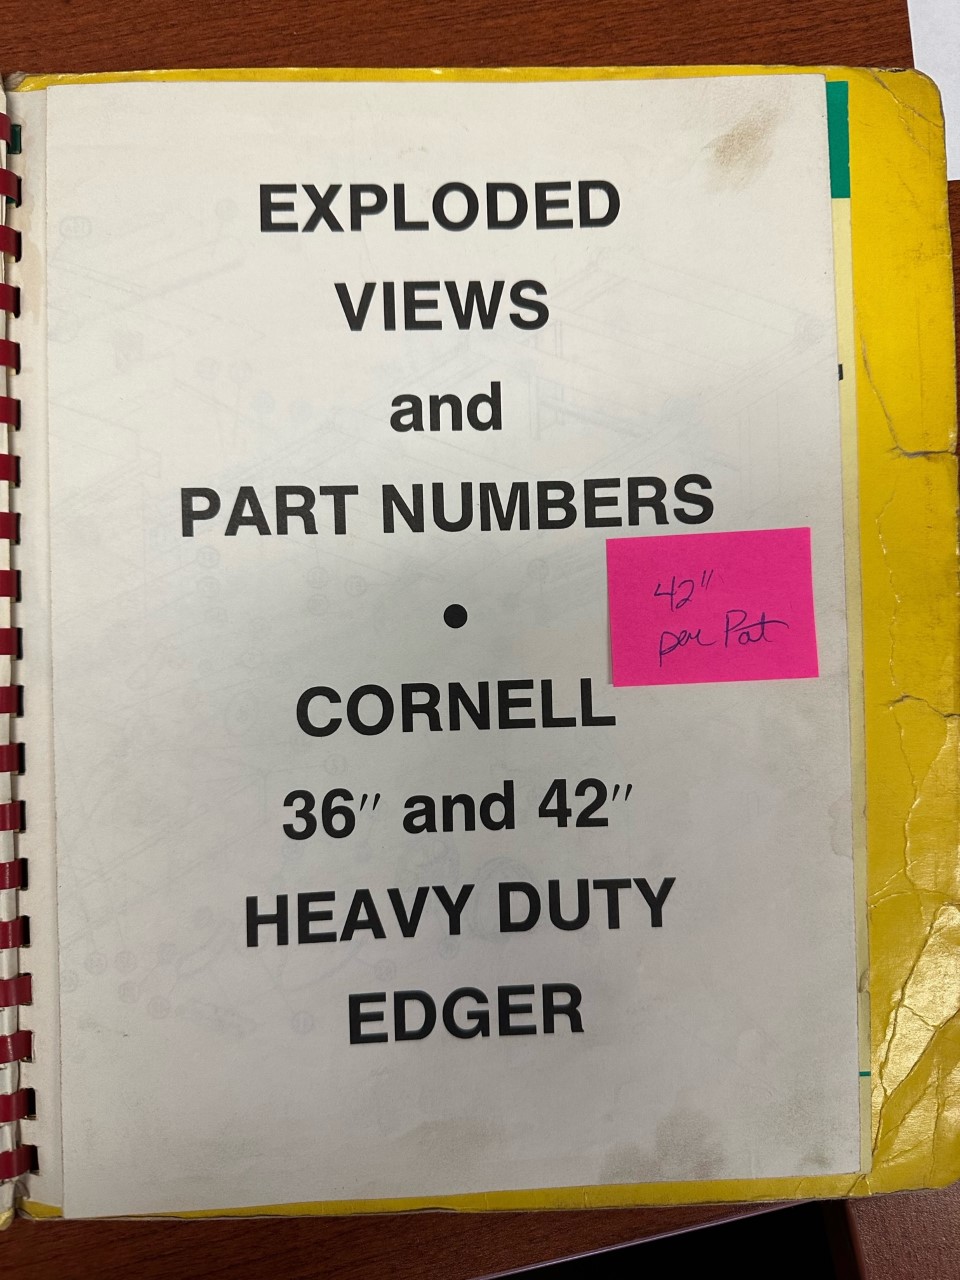 EXPLODED
VIEWS
and
PART NUMBERS
•
42"
per Pat
CORNELL
36″ and 42″
HEAVY DUTY
EDGER